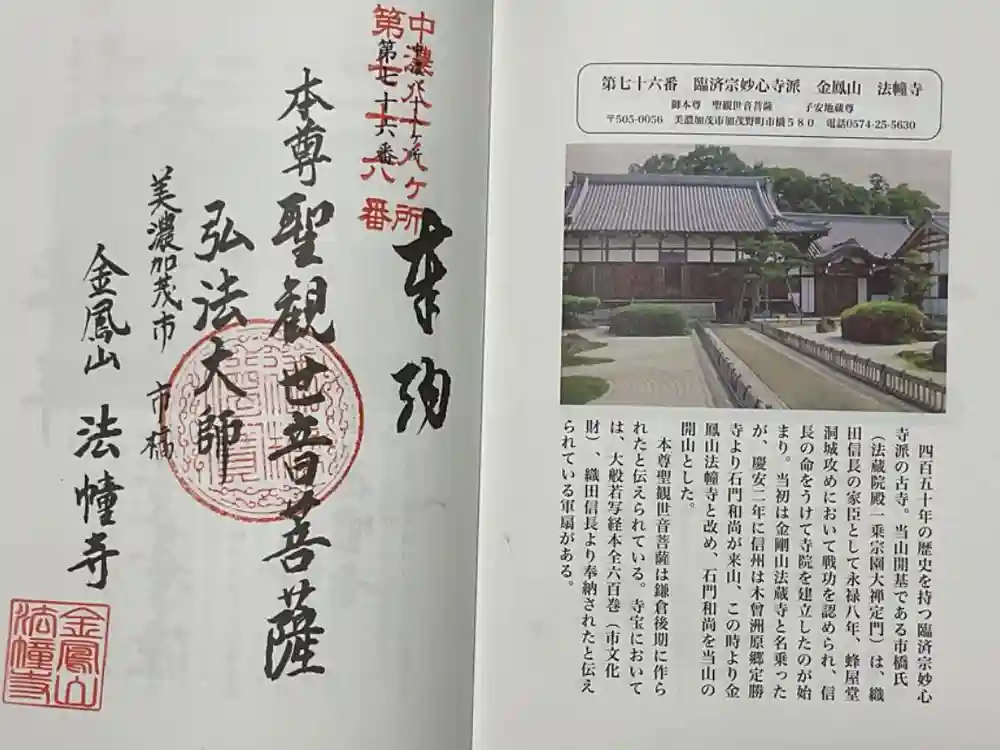 第七十六番 臨済宗妙心寺派 金鳳山 法幢寺
御本尊 聖観世音菩薩 子安地蔵尊
〒505-0056 美濃加茂市加茂野町市橋580 電話0574-25-5630
四百五十年の歴史を持つ臨済宗妙心
寺派の古寺。当山開基である市橋氏
(法蔵院殿一乗宗園大禅定門)は、織
田信長の家臣として永禄八年、蜂屋堂
洞城攻めにおいて戦功を認められ、信
長の命をうけて寺院を建立したのが始
まり。当初は金剛山法蔵寺と名乗った
が、慶安二年に信州は木曾洲原郷定勝
寺より石門和尚が来山、この時より金
鳳山法幢寺と改め、石門和尚を当山の
開山とした。
本尊聖観世音菩薩は鎌倉後期に作ら
れたと伝えられている。寺宝において
は、大般若写経本全六百巻(市文化
財)、織田信長より奉納されたと伝え
られている軍扇がある。
奉納
中濃八十八ヶ所
中濃八十八ヶ所
第七十六番
本尊聖観世音菩薩
弘法大師
美濃加茂市 市橋
金鳳山 法幢寺
金鳳山
法幢寺